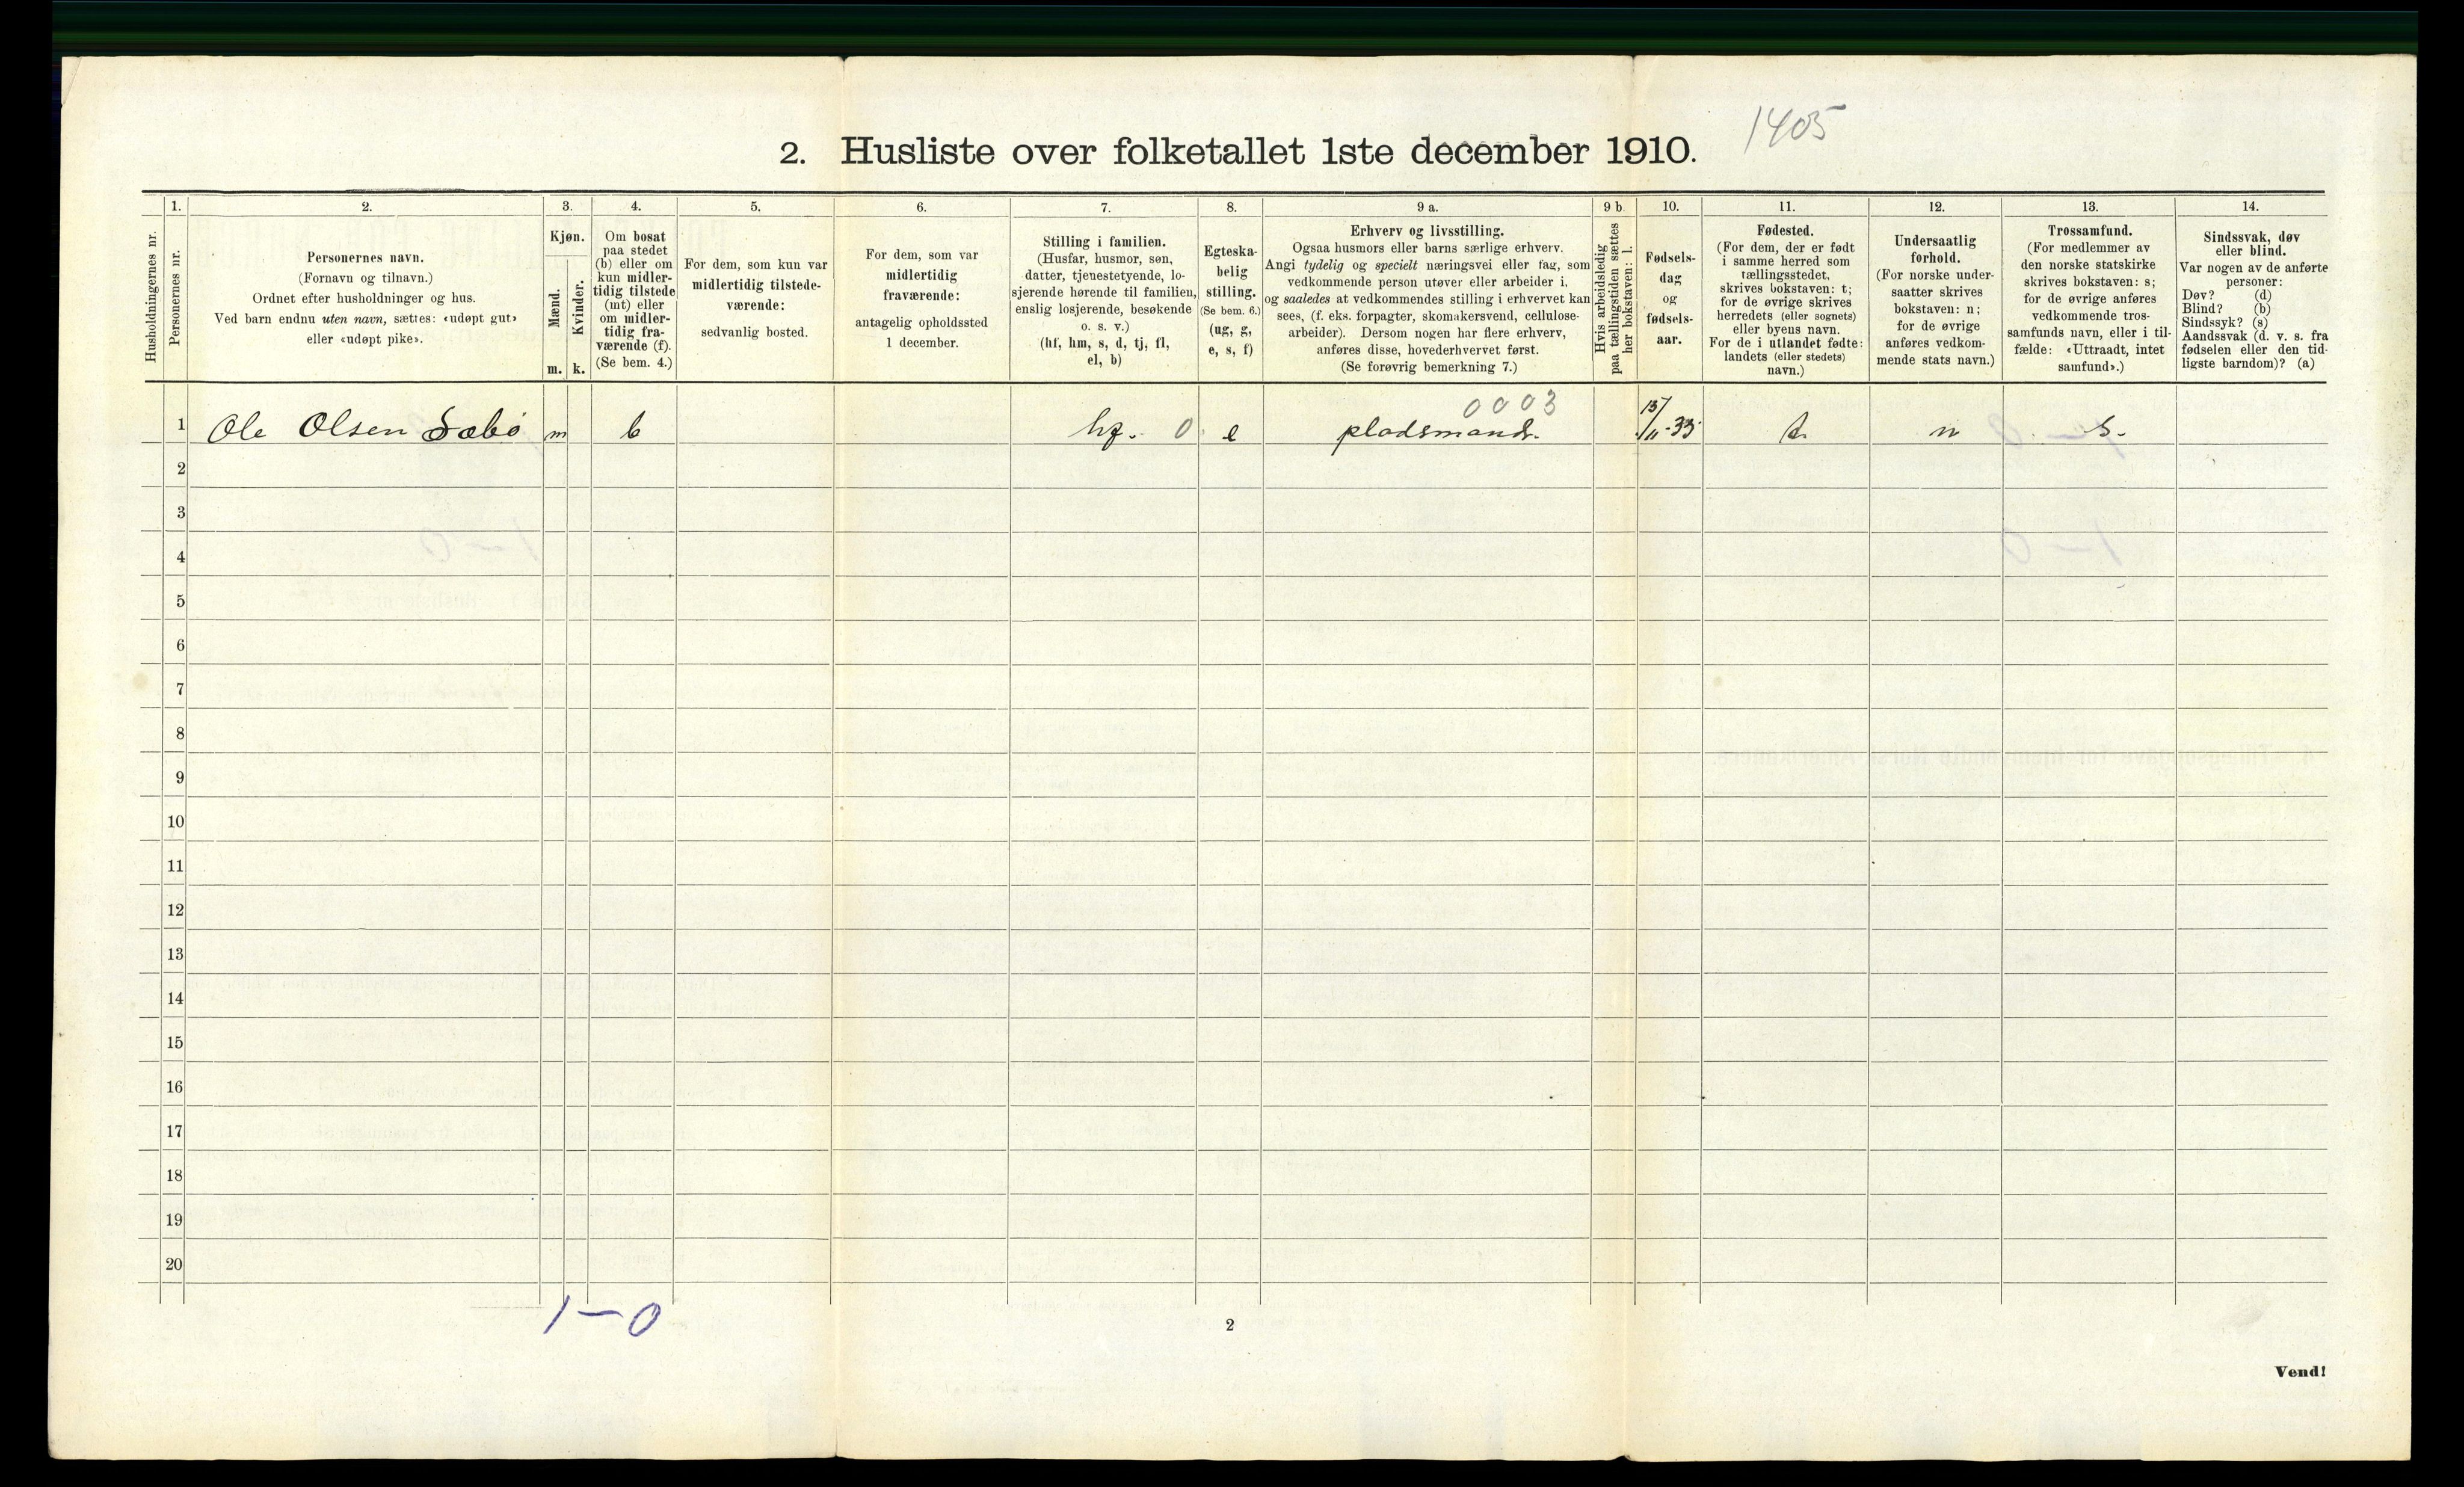 1405
2. Husliste over folketallet 1ste december 1910.
Husholdningernes nr.
1.
Personernes nr.
2.
Personernes navn.
(Fornavn og tilnavn.)
Ordnet efter husholdninger og hus.
Ved barn endnu uten navn, sættes: «udøpt gut»
eller «udøpt pike».
3.
Kjøn.
Mænd.
Kvinder.
m. k.
4.
Om bosat
paa stedet
(b) eller om
kun midler-
tidig tilstede
(mt) eller
om midler-
tidig fra-
værende (f).
(Se bem. 4.)
5.
For dem, som kun var
midlertidig tilstede-
værende:
sedvanlig bosted.
6.
For dem, som var
midlertidig
fraværende:
antagelig opholdssted
1 december.
7.
Stilling i familien.
(Husfar, husmor, søn,
datter, tjenestetyende, lo-
sjerende hørende til familien,
enslig losjerende, besøkende
o. s. v.)
(hf, hm, s, d, tj, fl,
el, b)
8.
Egteska-
belig
stilling.
(Se bem. 6.)
(ug, g,
e, s, f)
9 a.
Erhverv og livsstilling.
Ogsaa husmors eller barns særlige erhverv.
Angi tydelig og specielt næringsvei eller fag, som
vedkommende person utøver eller arbeider i,
og saaledes at vedkommendes stilling i erhvervet kan
sees, (f. eks. forpagter, skomakersvend, cellulose-
arbeider). Dersom nogen har flere erhverv,
anføres disse, hovederhvervet først.
(Se forøvrig bemerkning 7.)
9 b.
Hvis arbeidsledig
paa tællingstiden sættes
her bokstaven: l.
10.
Fødsels-
dag
og
fødsels-
aar.
11.
Fødested.
(For dem, der er født
i samme herred som
tællingsstedet,
skrives bokstaven: t;
for de øvrige skrives
herredets (eller sognets)
eller byens navn.
For de i utlandet fødte:
landets (eller stedets)
navn.)
12.
Undersaatlig
forhold.
(For norske under-
saatter skrives
bokstaven: n;
for de øvrige
anføres vedkom-
mende stats navn.)
13.
Trossamfund.
(For medlemmer av
den norske statskirke
skrives bokstaven: s;
for de øvrige anføres
vedkommende tros-
samfunds navn, eller i til-
fælde: «Uttraadt, intet
samfund».)
14.
Sindssvak, døv
eller blind.
Var nogen av de anførte
personer:
Døv? (d)
Blind? (b)
Sindssyk? (s)
Aandssvak (d. v. s. fra
fødselen eller den tid-
ligste barndom)? (a)
0003
1 Ole Olsen Sæbø m b hf. 0 e pladsmand. 15/11-33 t. n s.
2
3
4
5
6
7
8
9
10
11
12
13
14
15
16
17
18
19
20
1-0
2
Vend!